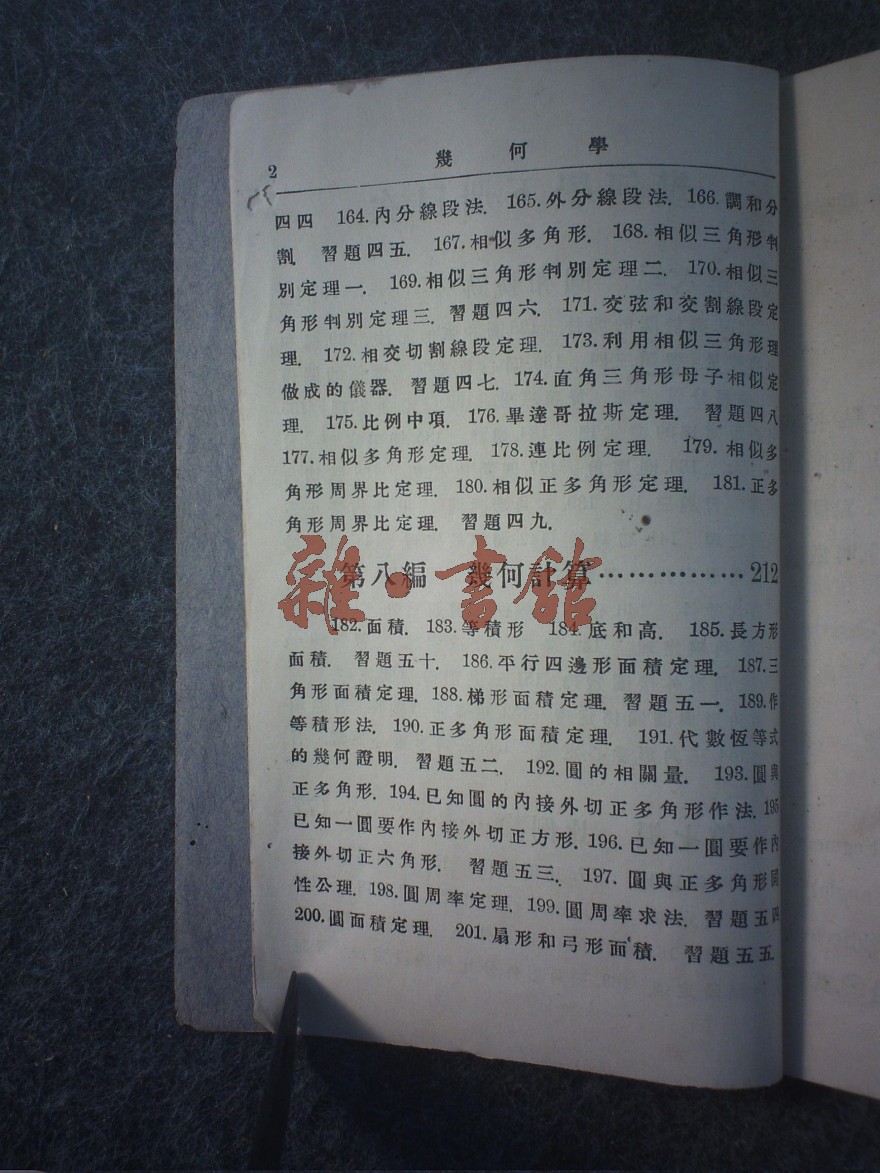 2
幾何學
四四 164.內分線段法. 165.外分線段法. 166.調和分
割. 習題四五. 167.相似多角形. 168.相似三角形判
別定理一. 169.相似三角形判別定理二. 170.相似三
角形判別定理三. 習題四六. 171.交弦和交割線段定
理. 172.相交切割線段定理. 173.利用相似三角形理
做成的儀器. 習題四七. 174.直角三角形母子相似定
理. 175.比例中項. 176.畢達哥拉斯定理. 習題四八
177.相似多角形定理. 178.連比例定理. 179.相似多
角形周界比定理. 180.相似正多角形定理. 181.正多
角形周界比定理. 習題四九.
第八編 幾何計算……………212
雜·書館
182.面積. 183.等積形 184.底和高. 185.長方形
面積. 習題五十. 186.平行四邊形面積定理. 187.三
角形面積定理. 188.梯形面積定理. 習題五一. 189.作
等積形法. 190.正多角形面積定理. 191.代數恆等式
的幾何證明. 習題五二. 192.圓的相關量. 193.圓與
正多角形. 194.已知圓的內接外切正多角形作法. 195
已知一圓要作內接外切正方形. 196.已知一圓要作內
接外切正六角形. 習題五三. 197.圓與正多角形同
性公理. 198.圓周率定理. 199.圓周率求法. 習題五四
200.圓面積定理. 201.扇形和弓形面積. 習題五五